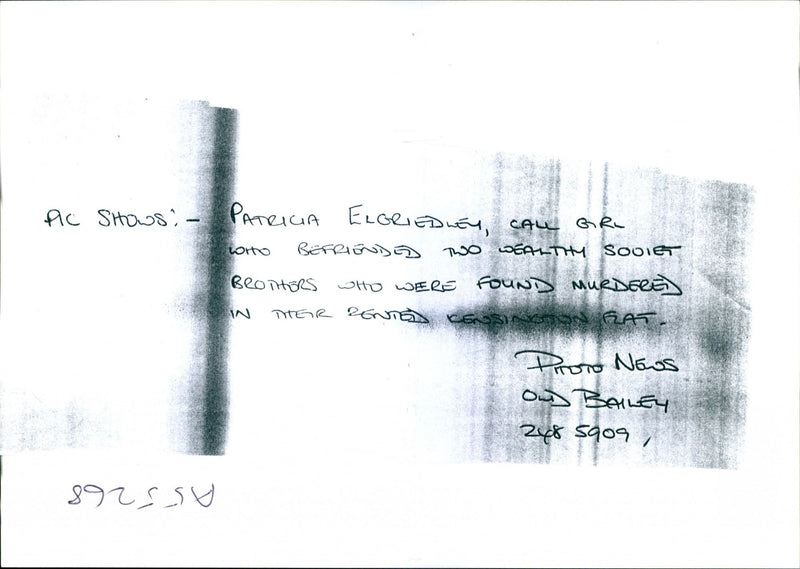 PIC SHOWS:- PATRICIA ELGRIEDLEY, CALL GIRL
WHO BEFRIENDED TWO WEALTHY SOVIET
BROTHERS WHO WERE FOUND MURDERED
IN THEIR RENTED KENSINGTON FLAT.
PHOTO NEWS
OLD BAILEY
248 5909,
A555268